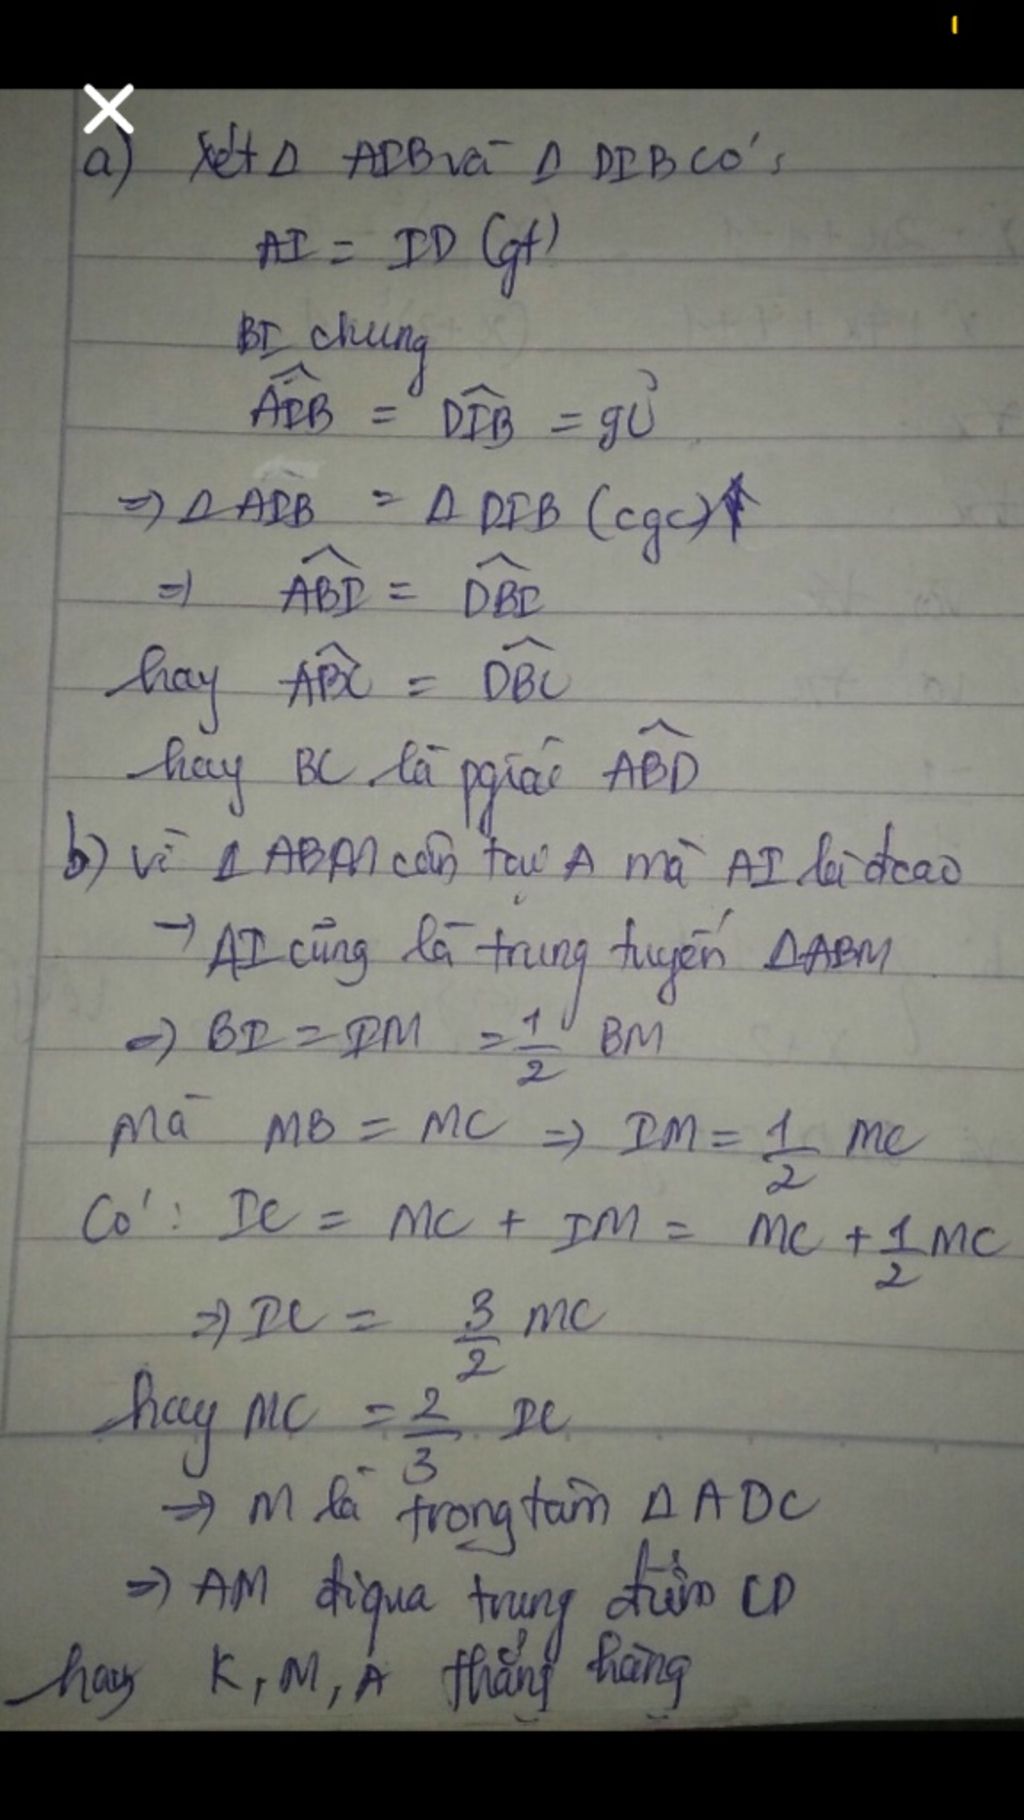 a) Xét Δ AIB và Δ DIB có:
AI = ID (gt)
BI chung
AIB = DIB = 90°
=> Δ AIB = Δ DIB (cgc)
=> ABI = DBI
hay ABC = DBC
hay BC là pgiác ABD
b) Vì Δ ABM cân tại A mà AI là đcao
→ AI cũng là trung tuyến ΔABM
=> BI = IM = 1/2 BM
Mà MB = MC => IM = 1/2 MC
Có: IC = MC + IM = MC + 1/2 MC
=> IC = 3/2 MC
hay MC = 2/3 IC
=> M là trọng tâm Δ ADC
=> AM đi qua trung điểm CD
hay K, M, A thẳng hàng